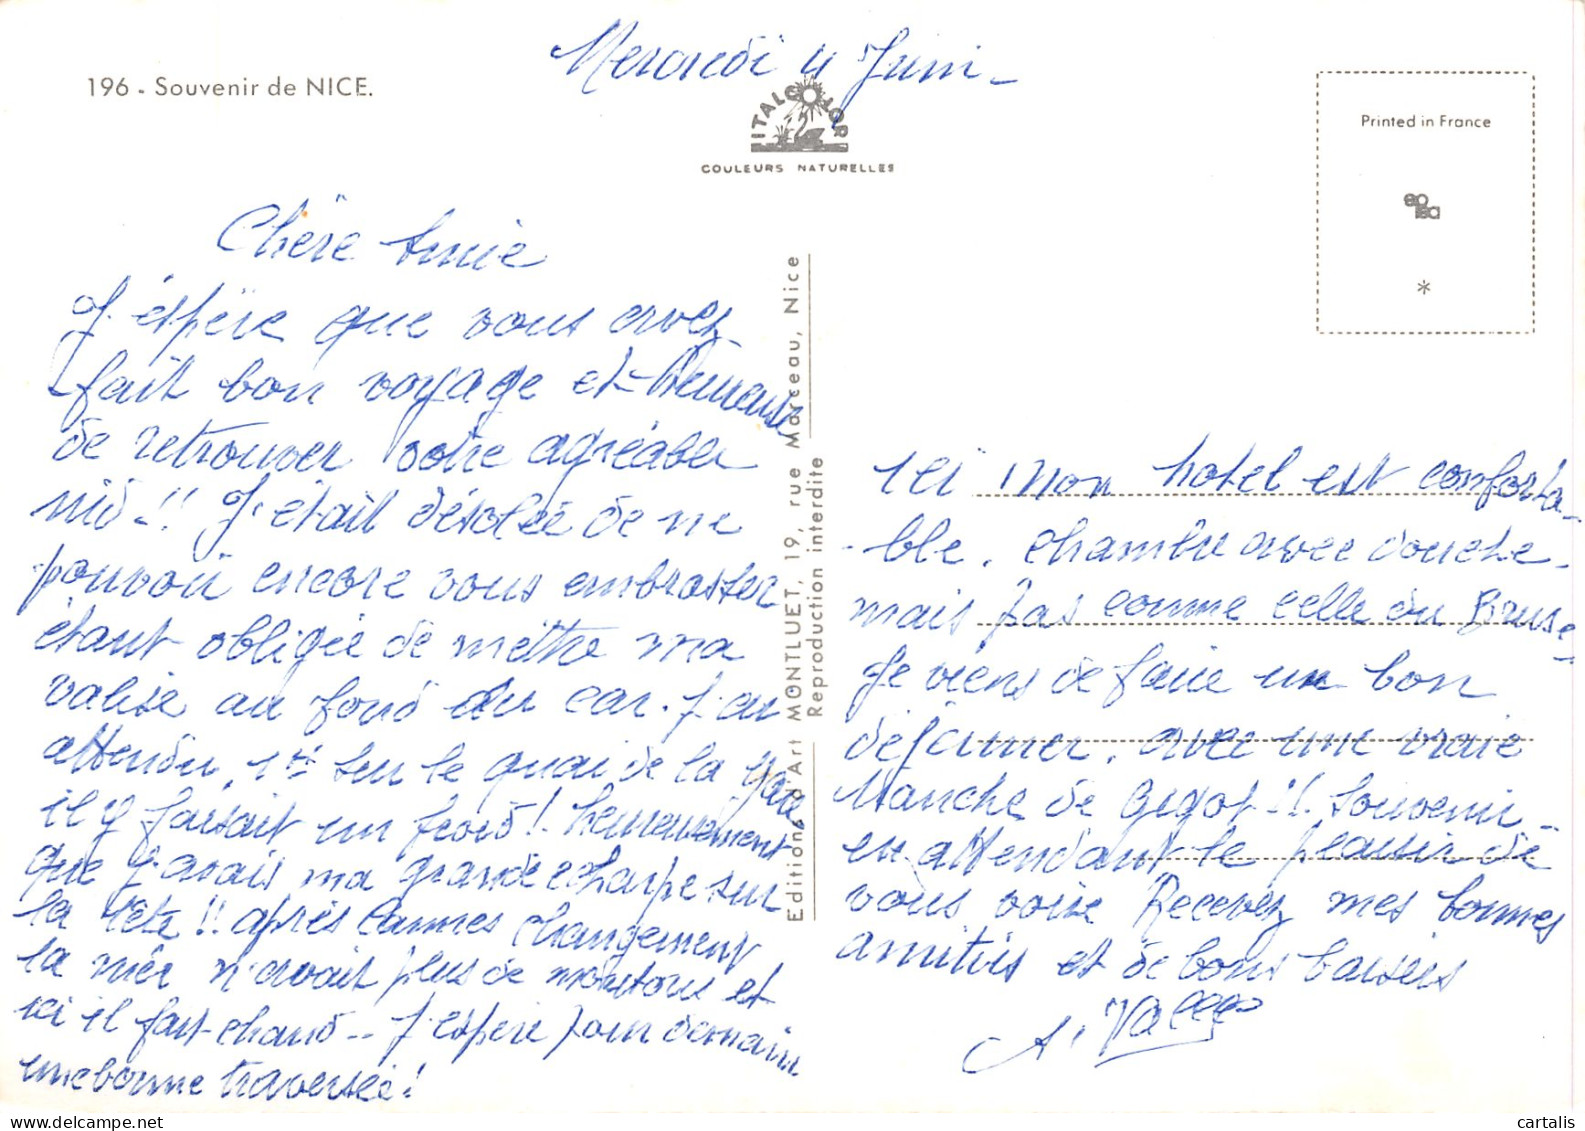 Mercredi 4 Juin -
196 - Souvenir de NICE.
ITALCOLOR
COULEURS NATURELLES
Printed in France
*
Chère Amie
J'espère que vous avez
fait bon voyage et heureuse
de retrouver votre agréable
nid - !! J'étais désolée de ne
pouvoir encore vous embrasser
étant obligée de mettre ma
valise au fond du car. J'ai
attendu, sur le quai de la gare
il y faisait un froid ! heureusement
que j'avais ma grande écharpe sur
la tête !! après Cannes changement
la mer n'avait plus de moutons et
ici il fait chaud -- J'espère pour demain
une bonne traversée !
Editions d'Art MONTLUET, 19, rue Marceau, Nice
Reproduction interdite
Ici mon hotel est conforta-
-ble. chambre avec douche -
mais pas comme celle du Brusc -
Je viens de faire un bon
déjeuner, avec une vraie
tranche de Gigot - !! Souvenir -
en attendant le plaisir de
vous voir Recevez mes bonnes
amitiés et de bons baisers
A. Vall
cartalis